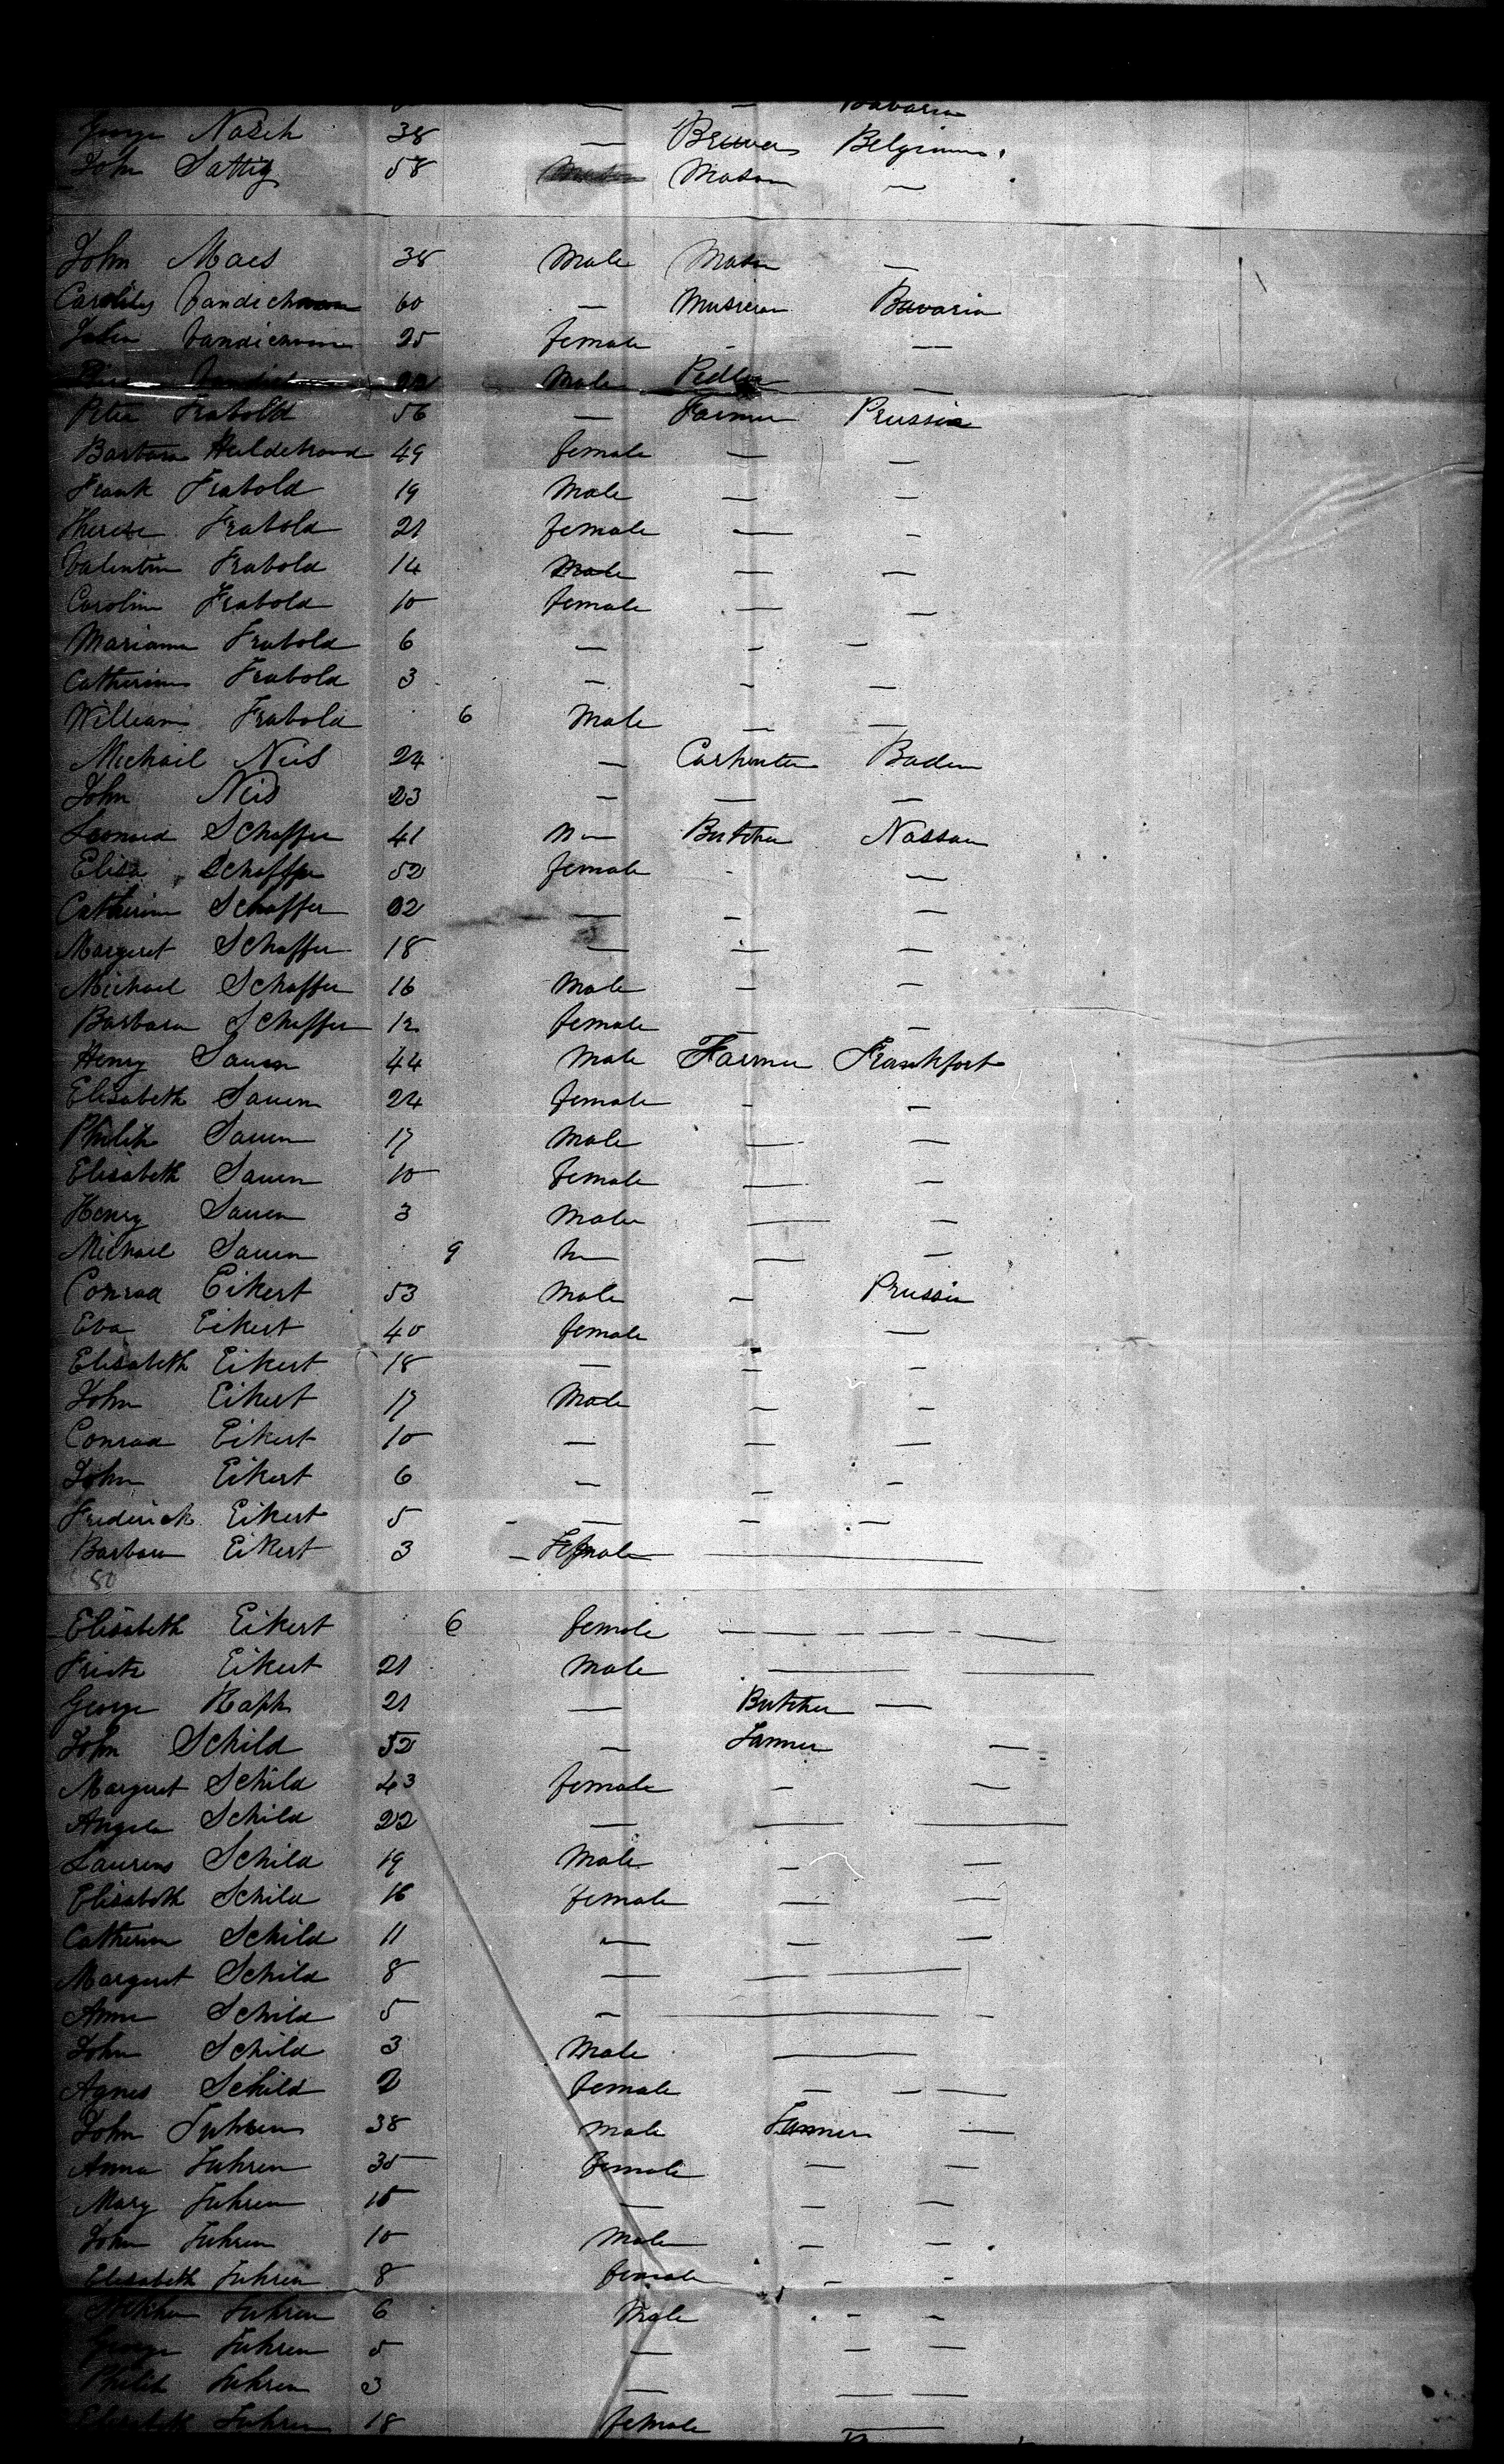 — — Bavaria
George Nasch 38 — Brewer Belgium.
John Sattig 58 Mason —
John Maes 38 Male Mason —
Carolus 60 — Musician Bavaria
25 female - —
22 Male Pedler —
Peter Frabold 56 — Farmer Prussia
Barbara Heildebrand 49 female — —
Frank Frabold 19 Male — —
Therese Frabold 21 female — -
Valentin Frabold 14 Male — —
Carolin Frabold 10 female — —
Mariann Frabold 6 — - —
Catherine Frabold 3 — - —
William Frabold 6 Male — —
Michail Neis 24 — Carpenter Baden
John Neis 23 — — —
Leonard Schaffer 41 M— Butcher Nassau
Elisa Schaffer 52 female - —
Catherine Schaffer 22 — - —
Margeret Schaffer 18 — — —
Michael Schaffer 16 Male — —
Barbara Schaffer 12 female — —
Henry Sauen 44 Male Farmer Frankfort
Elisabeth Sauen 24 female - —
Philip Sauen 17 Male — —
Elisabeth Sauen 10 female — —
Henry Sauen 3 Male — —
Michael Sauen 9 M— — —
Conrad Eikert 53 Male — Prussia
Eva Eikert 40 female —
Elisabeth Eikert 18 — — -
John Eikert 17 Male — -
Conrad Eikert 10 — — —
John Eikert 6 — — -
Frederick Eikert 5 — — —
Barbara Eikert 3 Female —
80
Elisabeth Eikert 6 female — — — — - —
Fritz Eikert 21 Male — —
George Raph 21 — Butcher —
John Schild 52 — Farmer —
Margret Schild 43 female — —
Angela Schild 22 — — —
Laurens Schild 19 Male — —
Elisabeth Schild 16 female — —
Catherin Schild 11 — — —
Margret Schild 8 — — —
Anna Schild 5 — —
John Schild 3 Male —
Agnes Schild 2 female — — —
John Fuhren 38 Male Farmer —
Anna Fuhren 35 female — —
Mary Fuhren 15 — — —
John Fuhren 10 Male — —
Elisabeth Fuhren 8 female — -
Stephen Fuhren 6 Male - —
George Fuhren 5 — — —
Philip Fuhren 3 — — —
Elisabeth Fuhren 18 female —